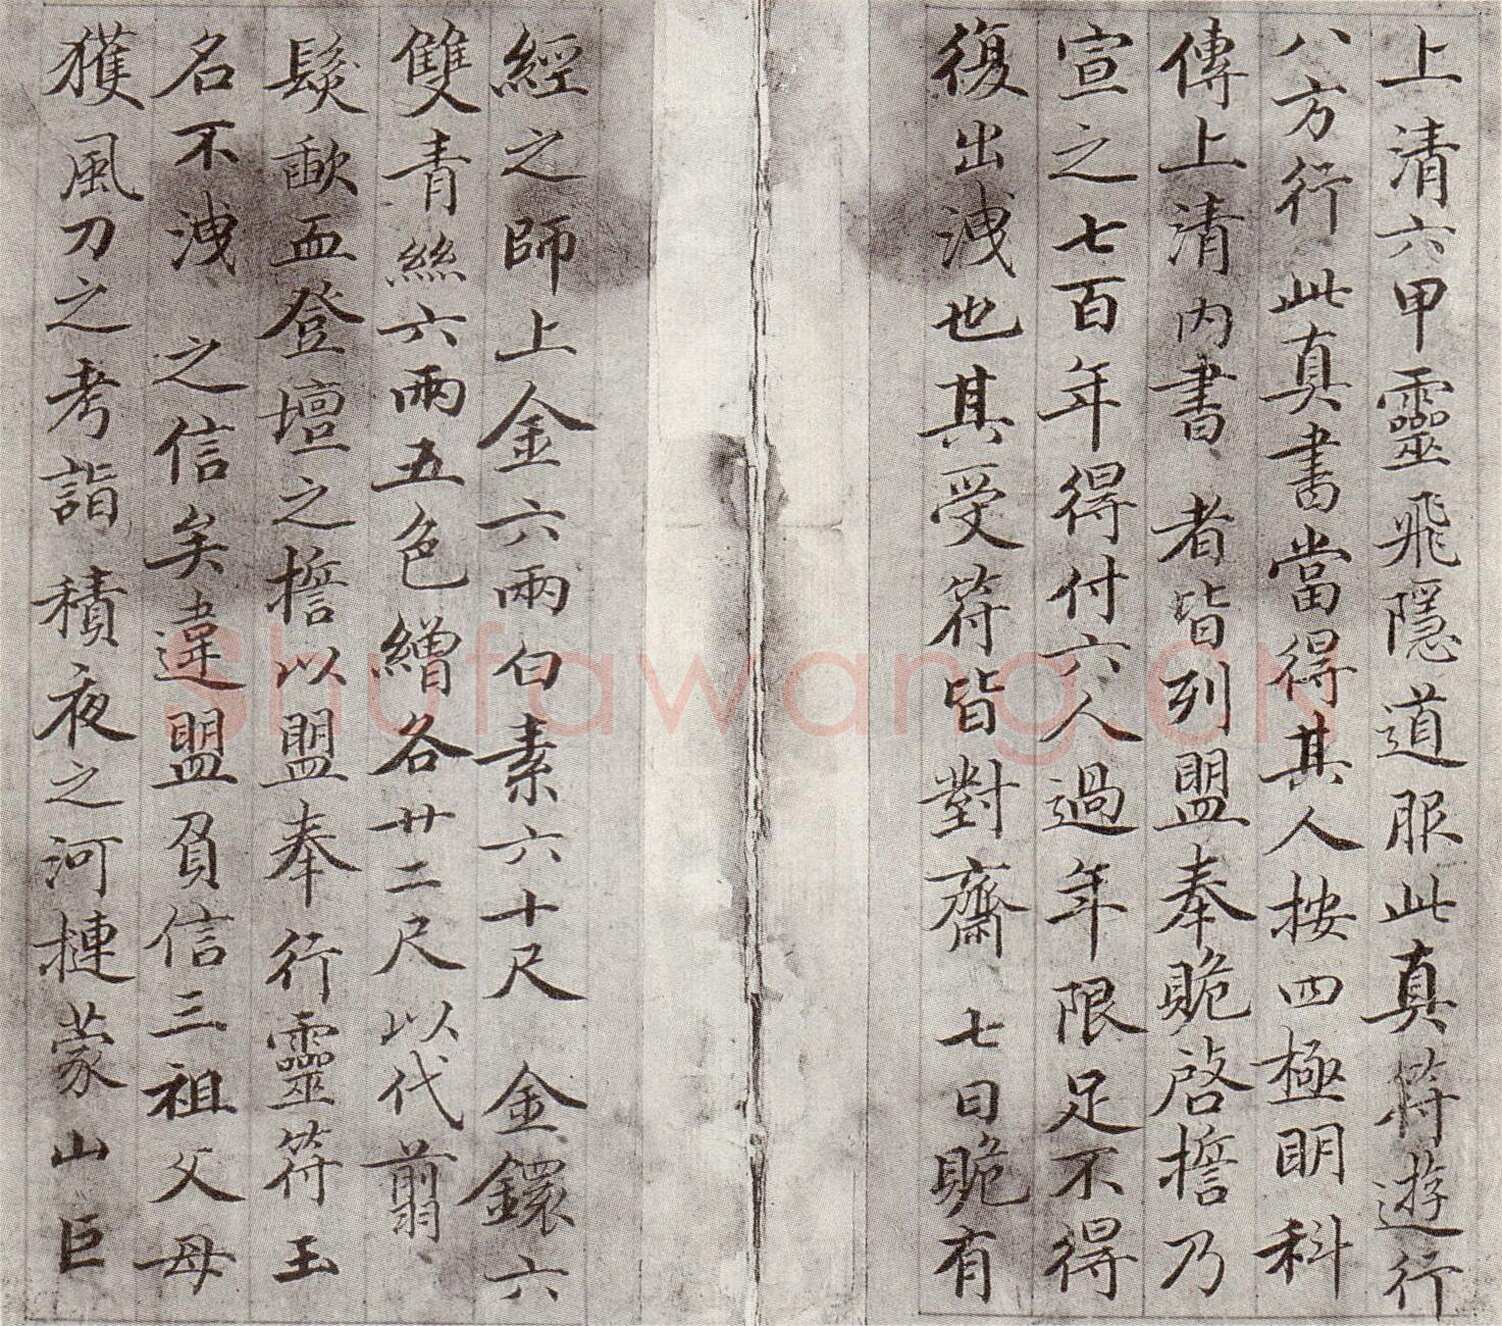 上清六甲靈飛隱道服此真符遊行
八方行此真書當得其人按四極明科
傳上清內書者皆列盟奉賝啓擔乃
宣之七百年得付六人過年限足不得
復出洩也其受符皆對齋七日賝有
經之師上金六兩白素六十尺金鐶六
雙青絲六兩五色繒各廿二尺以代翦
髮歃血登壇之擔以盟奉行靈符玉
名不洩之信矣違盟負信三祖父母
獲風刀之考詣積夜之河摙蒙山巨
shufawang.cn